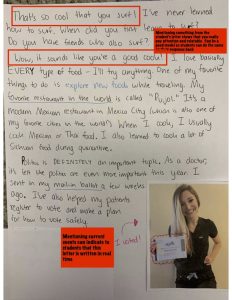 That's so cool that you surf! I've never learned
how to surf. When did you first learn to surf?
Do you have friends who also surf?
Mentioning something from the student's letter shows that you really
Wow, it sounds like you're a good cook! I love basically
EVERY type of food - I'll try anything. One of my favorite
things to do is explore new foods while traveling. My
favorite restaurant in the world is called "Pujol." It's a
Modern Mexican restaurant in Mexico City (which is also one of
my favorite cities in the world!) When I cook, I usually
cook Mexican or Thai food. I also learned to cook a lot of
food during quarantine.
Politics is DEFINITELY an important topic. As a doctor,
it's felt like politics are even more important this year. I
sent in my mail-in ballot a few weeks
ago. I've also helped my patients
register to vote and make a plan
for how to vote safely.
I voted!
Mentioning current
events can indicate to
students that this
letter is written in real
time